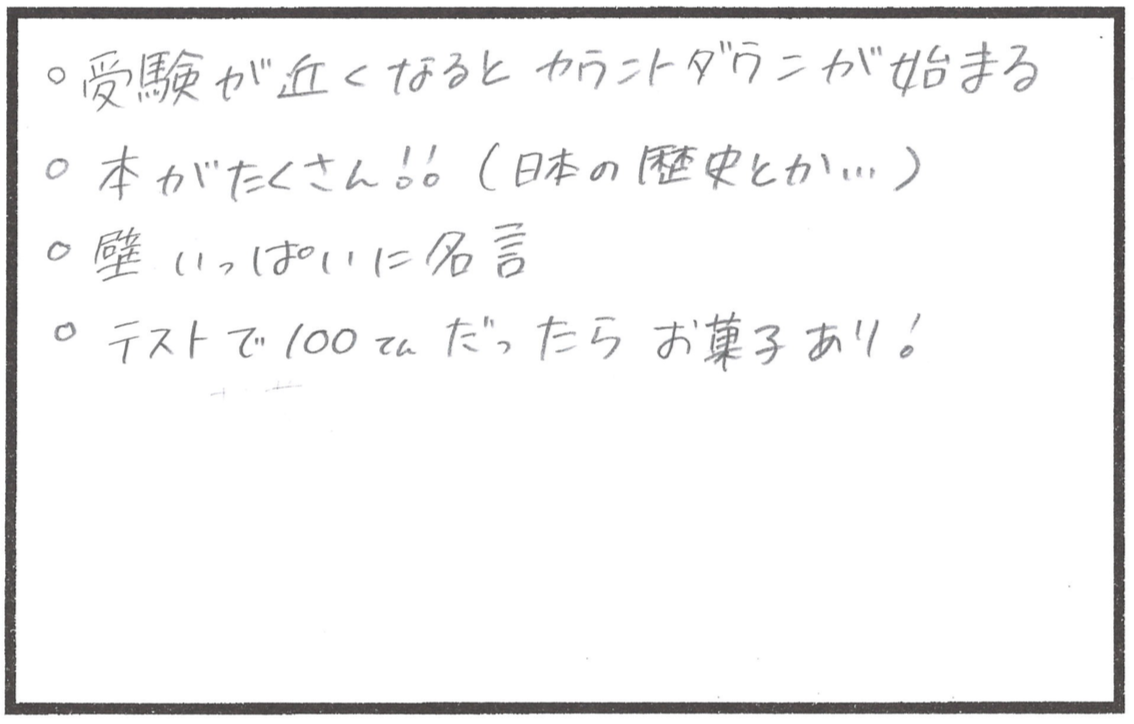 ○ 受験が近くなるとカウントダウンが始まる
○ 本がたくさん!!(日本の歴史とか…)
○ 壁いっぱいに名言
○ テストで100てんだったらお菓子あり!